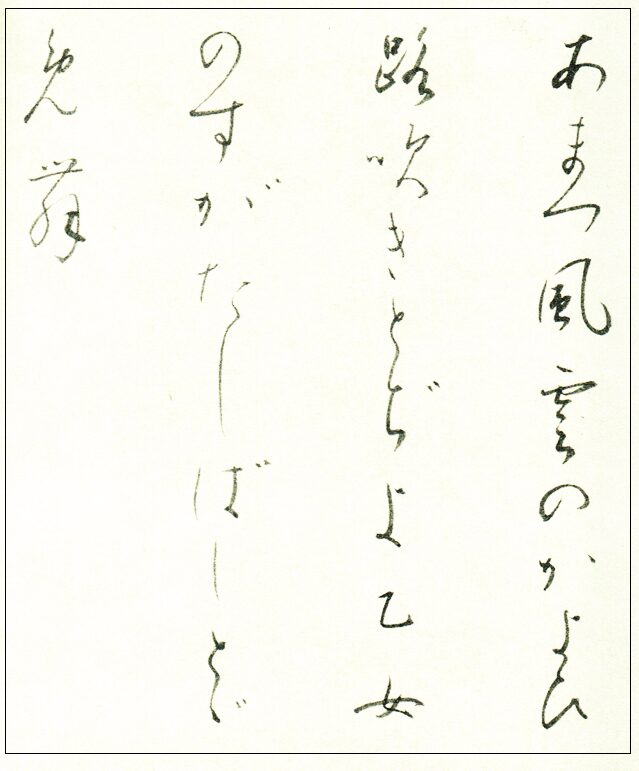 あまつ風雲のかよひ
路吹きとぢよ乙女
のすがたしばしとゞ
めん 舞